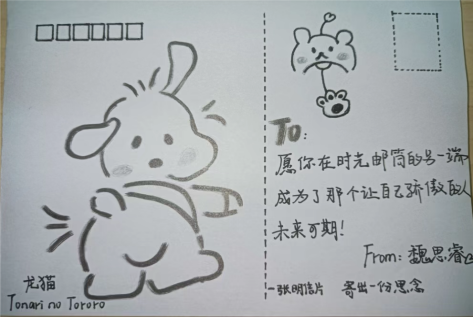 龙猫
Tonari no Tororo
To:
愿你在时光邮筒的另一端
成为了那个让自己骄傲的人
未来可期!
From: 魏思睿
一张明信片 寄出一份思念